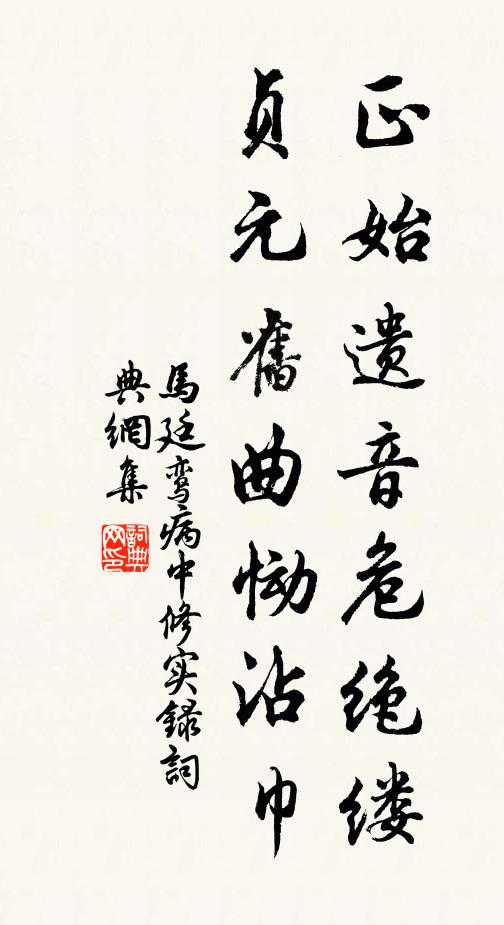 正始遗音危绝缕
贞元舊曲恸沾巾
馬廷鸾病中修实録詞
典網集
詞典网印